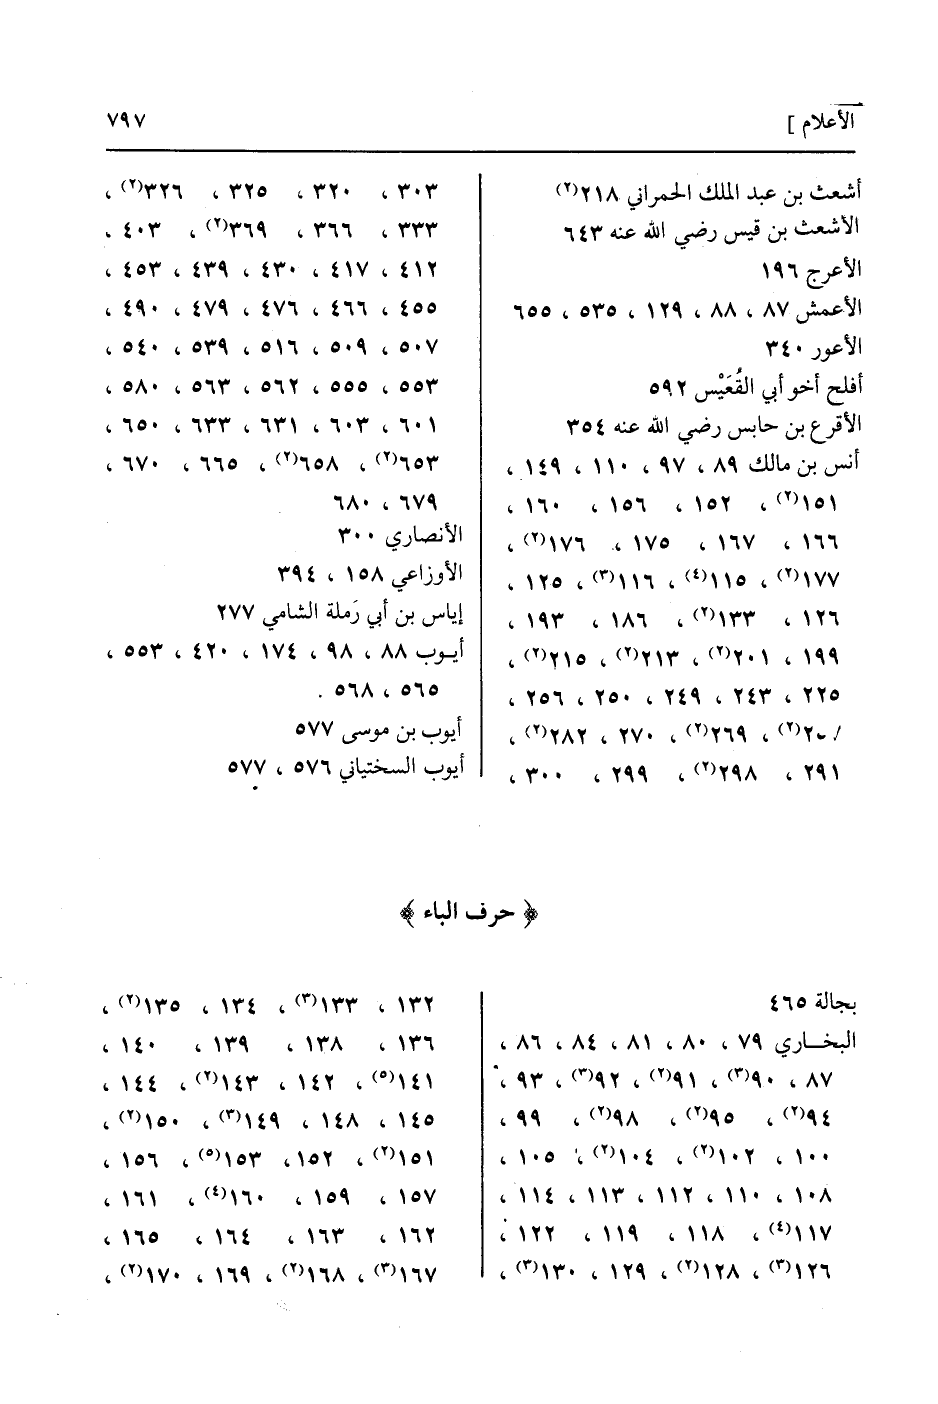 الأعلام ] ٧٩٧
أشعث بن عبد الملك الحمراني ٢١٨(٢)
الأشعث بن قيس رضي الله عنه ٦٤٣
الأعرج ١٩٦
الأعمش ٨٧ ، ٨٨ ، ١٢٩ ، ٥٣٥ ، ٦٥٥
الأعور ٣٤٠
أفلح أخو أبي القُعَيْس ٥٩٢
الأقرع بن حابس رضي الله عنه ٣٥٤
أنس بن مالك ٨٩ ، ٩٧ ، ١١٠ ، ١٤٩ ،
١٥١(٢) ، ١٥٢ ، ١٥٦ ، ١٦٠ ،
١٦٦ ، ١٦٧ ، ١٧٥ ، ١٧٦(٢) ،
١٧٧(٢) ، ١١٥(٤) ، ١١٦(٣) ، ١٢٥ ،
١٢٦ ، ١٣٣(٢) ، ١٨٦ ، ١٩٣ ،
١٩٩ ، ٢٠١(٢) ، ٢١٣(٢) ، ٢١٥(٢) ،
٢٢٥ ، ٢٤٣ ، ٢٤٩ ، ٢٥٠ ، ٢٥٦ ،
، ٢٦٩(٢) ، ٢٧٠ ، ٢٨٢(٢) ،
٢٩١ ، ٢٩٨(٢) ، ٢٩٩ ، ٣٠٠ ،
٣٠٣ ، ٣٢٠ ، ٣٢٥ ، ٣٢٦(٢) ،
٣٣٣ ، ٣٦٦ ، ٣٦٩(٢) ، ٤٠٣ ،
٤١٢ ، ٤١٧ ، ٤٣٠ ، ٤٣٩ ، ٤٥٣ ،
٤٥٥ ، ٤٦٦ ، ٤٧٦ ، ٤٧٩ ، ٤٩٠ ،
٥٠٧ ، ٥٠٩ ، ٥١٦ ، ٥٣٩ ، ٥٤٠ ،
٥٥٣ ، ٥٥٥ ، ٥٦٢ ، ٥٦٣ ، ٥٨٠ ،
٦٠١ ، ٦٠٣ ، ٦٣١ ، ٦٣٣ ، ٦٥٠ ،
٦٥٣(٢) ، ٦٥٨(٢) ، ٦٦٥ ، ٦٧٠ ،
٦٧٩ ، ٦٨٠
الأنصاري ٣٠٠
الأوزاعي ١٥٨ ، ٣٩٤
إياس بن أبي رَملة الشامي ٢٧٧
أيـوب ٨٨ ، ٩٨ ، ١٧٤ ، ٤٢٠ ، ٥٥٣ ،
٥٦٥ ، ٥٦٨ .
أيوب بن موسى ٥٧٧
أيوب السختياني ٥٧٦ ، ٥٧٧
﴿ حرف الباء ﴾
بجالة ٤٦٥
البخـــاري ٧٩ ، ٨٠ ، ٨١ ، ٨٤ ، ٨٦ ،
٨٧ ، ٩٠(٣) ، ٩١(٢) ، ٩٢(٣) ، ٩٣ ،
٩٤(٢) ، ٩٥(٢) ، ٩٨(٢) ، ٩٩ ،
١٠٠ ، ١٠٢(٢) ، ١٠٤(٢) ، ١٠٥ ،
١٠٨ ، ١١٠ ، ١١٢ ، ١١٣ ، ١١٤ ،
١١٧(٤) ، ١١٨ ، ١١٩ ، ١٢٢ ،
١٢٦(٣) ، ١٢٨(٢) ، ١٢٩ ، ١٣٠(٣) ،
١٣٢ ، ١٣٣(٣) ، ١٣٤ ، ١٣٥(٢) ،
١٣٦ ، ١٣٨ ، ١٣٩ ، ١٤٠ ،
١٤١(٥) ، ١٤٢ ، ١٤٣(٢) ، ١٤٤ ،
١٤٥ ، ١٤٨ ، ١٤٩(٣) ، ١٥٠(٢) ،
١٥١(٢) ، ١٥٢ ، ١٥٣(٥) ، ١٥٦ ،
١٥٧ ، ١٥٩ ، ١٦٠(٤) ، ١٦١ ،
١٦٢ ، ١٦٣ ، ١٦٤ ، ١٦٥ ،
١٦٧(٣) ، ١٦٨(٢) ، ١٦٩ ، ١٧٠(٢) ،